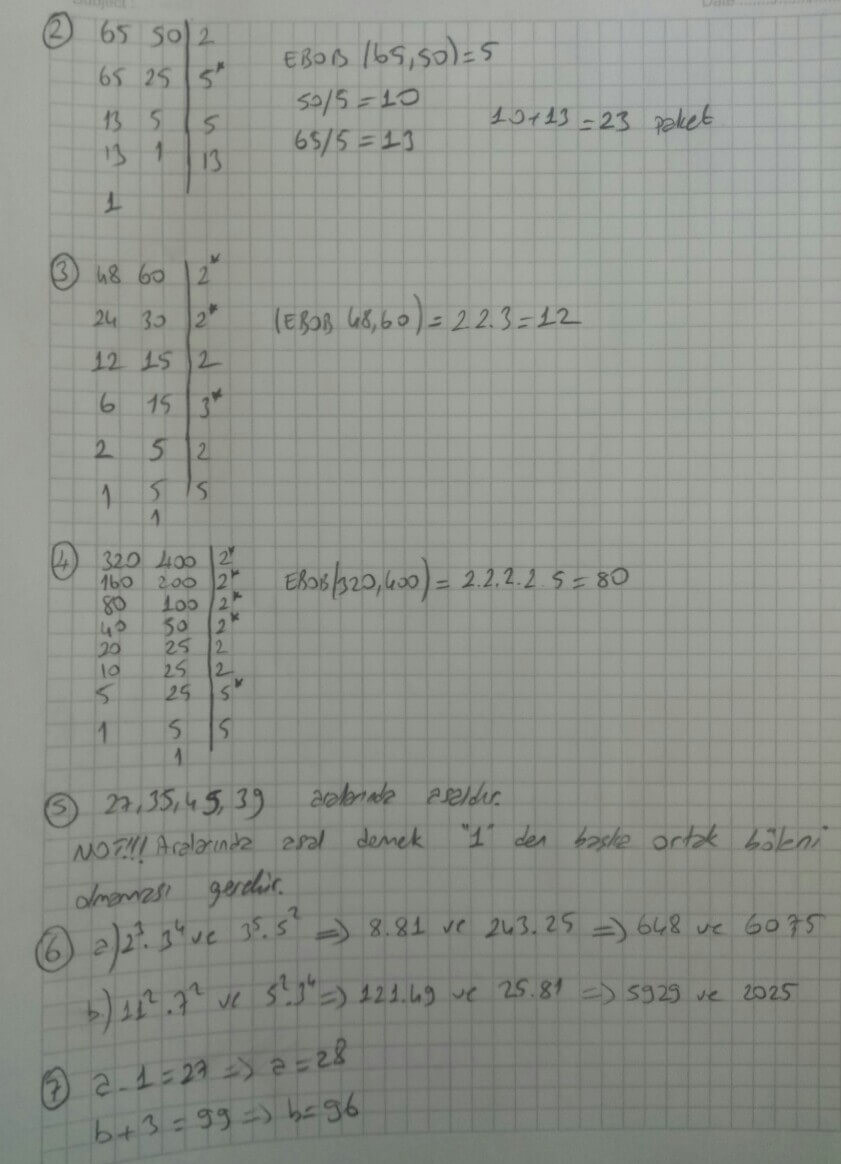 Subject
Date
② 65 50 | 2 EBOB (65,50) = 5
65 25 | 5* 50/5 = 10
13 5 | 5 65/5 = 13 10+13 = 23 paket
13 1 | 13
1
③ 48 60 | 2*
24 30 | 2* (EBOB 48,60) = 2.2.3 = 12
12 15 | 2
6 15 | 3*
2 5 | 2
1 5 | 5
1
④ 320 400 | 2*
160 200 | 2* EBOB(320,400) = 2.2.2.2.5 = 80
80 100 | 2*
40 50 | 2*
20 25 | 2
10 25 | 2
5 25 | 5*
1 5 | 5
1
⑤ 27,35,45,39 aralarında asaldır.
NOT!!! Aralarında asal demek "1" den başka ortak böleni
olmaması gerekir.
⑥ a) 2³.3⁴ ve 3⁵.5² => 8.81 ve 243.25 => 648 ve 6075
b) 11².7² ve 5².3⁴ => 121.49 ve 25.81 => 5929 ve 2025
⑦ a-1=27 => a=28
b+3=99 => b=96